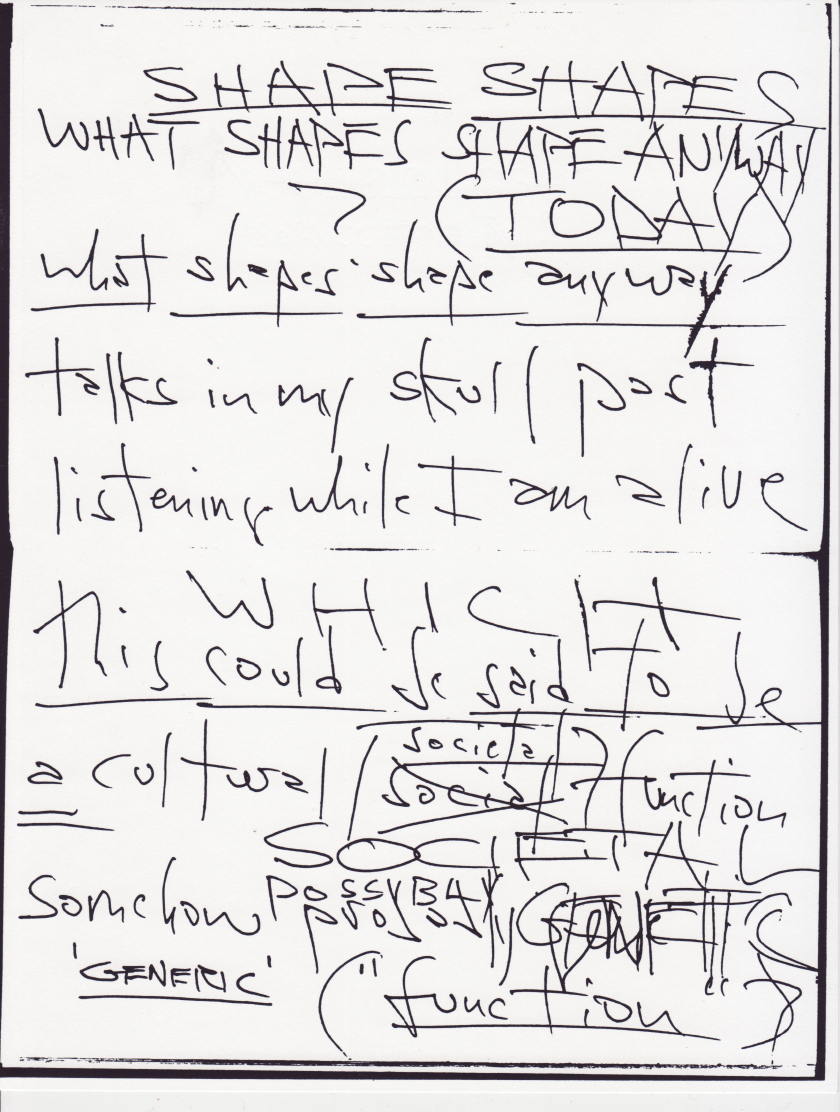 SHAPE SHAPES
WHAT SHAPES SHAPE ANYWAY
? (TODAY)
what shapes shape anyway
talks in my skull past
listening while I am alive
WHICH
this could be said to be
a cultural / societal function
social
SOCIETAL
somehow POSSYBLY GENETIC
probably
'GENERIC'
("function")